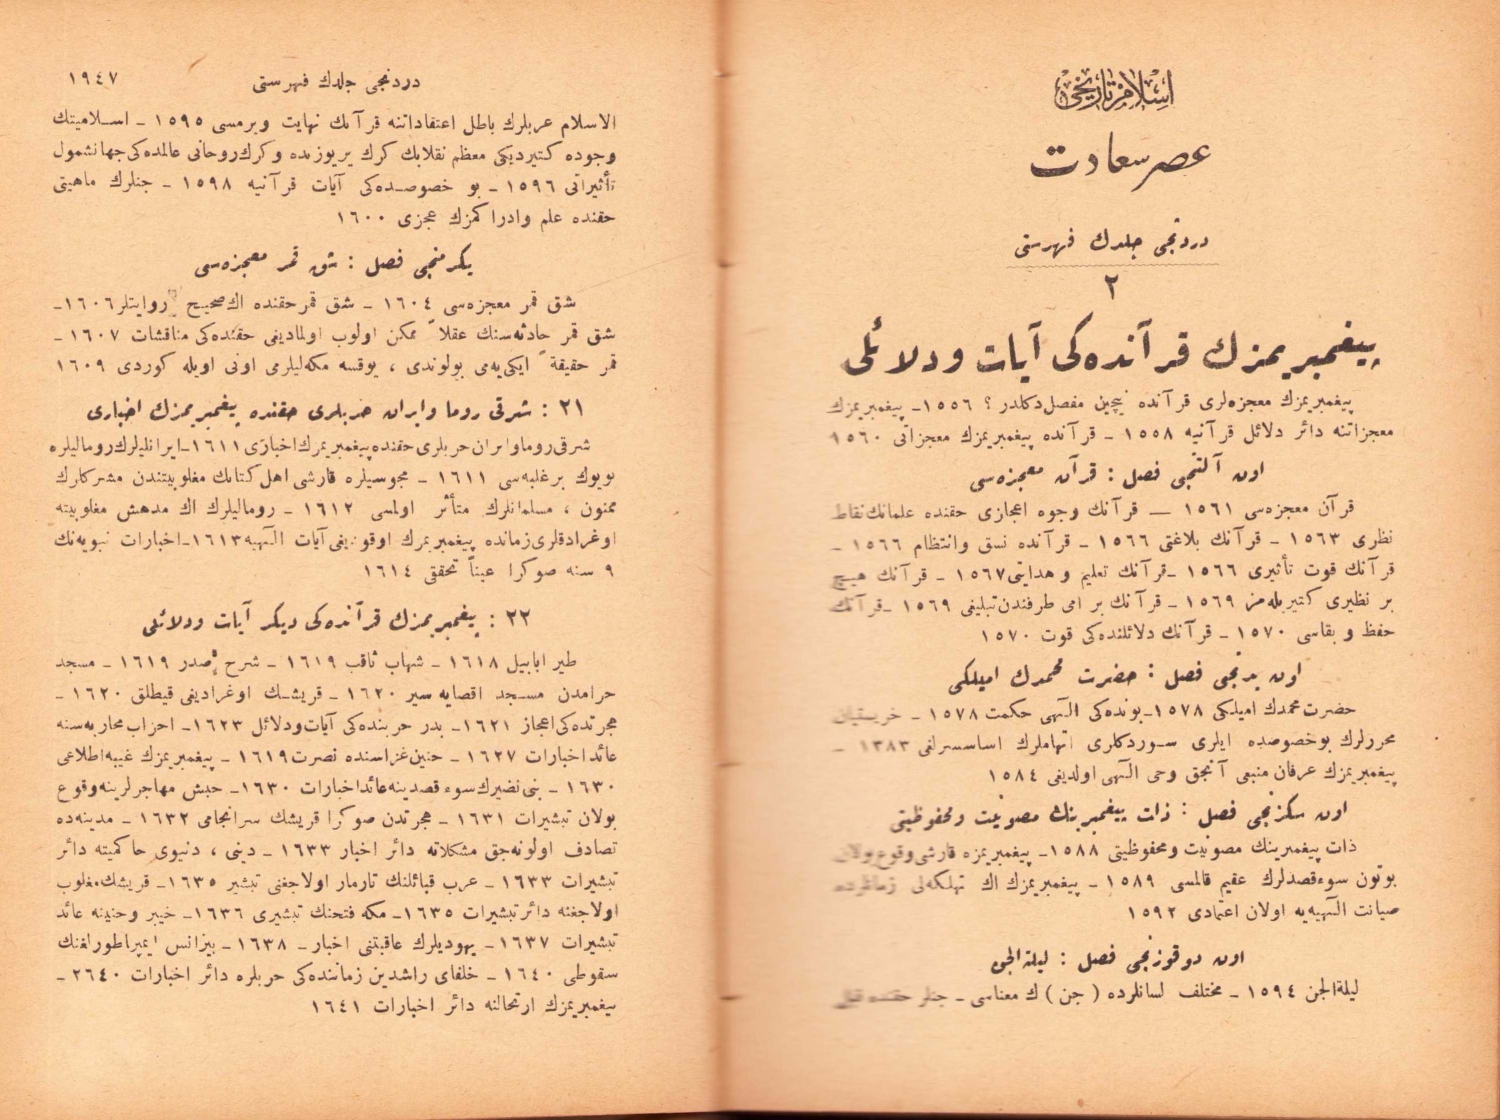 اسلام تاريخی
عصر سعادت
دردنجی جلدك فهرستی
٢
پيغمبريمزك قرآنده‌كی آيات ودلائلی
پيغمبريمزك معجزه‌لری قرآنده نيچين مفصل دكلدر ؟ ١٥٥٦ ـ پيغمبريمزك
معجزاتنه دائر دلائل قرآنيه ١٥٥٨ ـ قرآنده پيغمبريمزك معجزاتی ١٥٦٠
اون آلتنجی فصل : قرآن معجزه‌سی
قرآن معجزه‌سی ١٥٦١ — قرآنك وجوه اعجازی حقنده علمانك نقاط
نظری ١٥٦٣ ـ قرآنك بلاغتی ١٥٦٦ ـ قرآنده نسق وانتظام ١٥٦٦ ـ
قرآنك قوت تأثيری ١٥٦٦ ـ قرآنك تعليم و هدايتی ١٥٦٧ ـ قرآنك هيچ
بر نظيری كتيريله‌مز ١٥٦٩ ـ قرآنك بر امی طرفندن تبليغی ١٥٦٩ ـ قرآنك
حفظ و بقاسی ١٥٧٠ ـ قرآنك دلائلنده‌كی قوت ١٥٧٠
اون يدنجی فصل : حضرت محمدك اميلكی
حضرت محمدك اميلكی ١٥٧٨ ـ بونده‌كی الٓهی حكمت ١٥٧٨ ـ خريستيان
محررلرك بو خصوصده ايلری سوردكلری اتهاملرك اساسسزلغی ١٣٨٣ ـ
پيغمبريمزك عرفان منبعی آنجق وحی الٓهی اولديغی ١٥٨٤
اون سكزنجی فصل : ذات پيغمبرينك مصونيت ومحفوظيتی
ذات پيغمبرينك مصونيت ومحفوظيتی ١٥٨٨ ـ پيغمبريمزه قارشی وقوع بولان
بوتون سوء قصدلرك عقيم قالمسی ١٥٨٩ ـ پيغمبريمزك اك تهلكه‌لی زمانلرده
صيانت الٓهيه‌يه اولان اعتمادی ١٥٩٢
اون دوقوزنجی فصل : ليلةالجن
ليلةالجن ١٥٩٤ ـ مختلف لسانلرده ( جن ) ك معناسی ـ جنلر حقنده قبل
دردنجی جلدك فهرستی
١٩٤٧
الاسلام عربلرك باطل اعتقاداتنه قرآنك نهايت ويرمسی ١٥٩٥ ـ اسلاميتك
وجوده كتيرديكی معظم نقلابك كرك يريوزنده وكرك روحانی عالمده‌كی جهانشمول
تأثيراتی ١٥٩٦ ـ بو خصوصده‌كی آيات قرآنيه ١٥٩٨ ـ جنلرك ماهيتی
حقنده علم وادراكمزك عجزی ١٦٠٠
يكرمنجی فصل : شق قمر معجزه‌سی
شق قمر معجزه‌سی ١٦٠٤ ـ شق قمر حقنده اك صحيح روايتلر ١٦٠٦ ـ
شق قمر حادثه‌سنك عقلاً ممكن اولوب اولماديغی حقنده‌كی مناقشات ١٦٠٧ ـ
قمر حقيقةً ايكی‌يه‌می بولوندی ، يوقسه مكه‌ليلرمی اونی اويله كوردی ١٦٠٩
٢١ : شرقی روما وايران حربلری حقنده پيغمبريمزك اخباری
شرقی روما وايران حربلری حقنده پيغمبريمزك اخباری ١٦١١ ـ ايرانليلرك رومالیلره
بويوك بر غلبه‌سی ١٦١١ ـ مجوسيلره قارشی اهل كتابك مغلوبيتندن مشركلرك
ممنون ، مسلمانلرك متأثر اولمسی ١٦١٢ ـ رومالیلرك اك مدهش مغلوبيته
اوغرادقلری زمانده پيغمبريمزك اوقوديغی آيات الٓهيه ١٦١٣ ـ اخبارات نبويه‌نك
٩ سنه صوكرا عيناً تحققی ١٦١٤
٢٢ : پيغمبريمزك قرآنده‌كی ديكر آيات ودلائلی
طير ابابيل ١٦١٨ ـ شهاب ثاقب ١٦١٩ ـ شرح صدر ١٦١٩ ـ مسجد
حرامدن مسجد اقصايه سير ١٦٢٠ ـ قريشك اوغراديغی قيطلق ١٦٢٠ ـ
هجرتده‌كی اعجاز ١٦٢١ ـ بدر حربنده‌كی آيات ودلائل ١٦٢٣ ـ احزاب محاربه‌سنه
عائد اخبارات ١٦٢٧ ـ حنين غزاسنده نصرت ١٦١٩ ـ پيغمبريمزك غيبه اطلاعی
١٦٣٠ ـ بنی نضيرك سوء قصدينه عائد اخبارات ١٦٣٠ ـ حبش مهاجرلرينه وقوع
بولان تبشيرات ١٦٣١ ـ هجرتدن صوكرا قريشك سرانجامی ١٦٣٢ ـ مدينه‌ده
تصادف اولونه‌جق مشكلاته دائر اخبار ١٦٣٣ ـ دينی ، دنيوی حاكميته دائر
تبشيرات ١٦٣٣ ـ عرب قبائلنك تارمار اولاجغنی تبشير ١٦٣٥ ـ قريشك مغلوب
اولاجغنه دائر تبشيرات ١٦٣٥ ـ مكه فتحنك تبشيری ١٦٣٦ ـ خيبر وحنينه عائد
تبشيرات ١٦٣٧ ـ يهوديلرك عاقبتنی اخبار ـ ١٦٣٨ ـ بيزانس ايمپراطورلغنك
سقوطی ١٦٤٠ ـ خلفای راشدين زماننده‌كی حربلره دائر اخبارات ٢٦٤٠ ـ
پيغمبريمزك ارتحالنه دائر اخبارات ١٦٤١